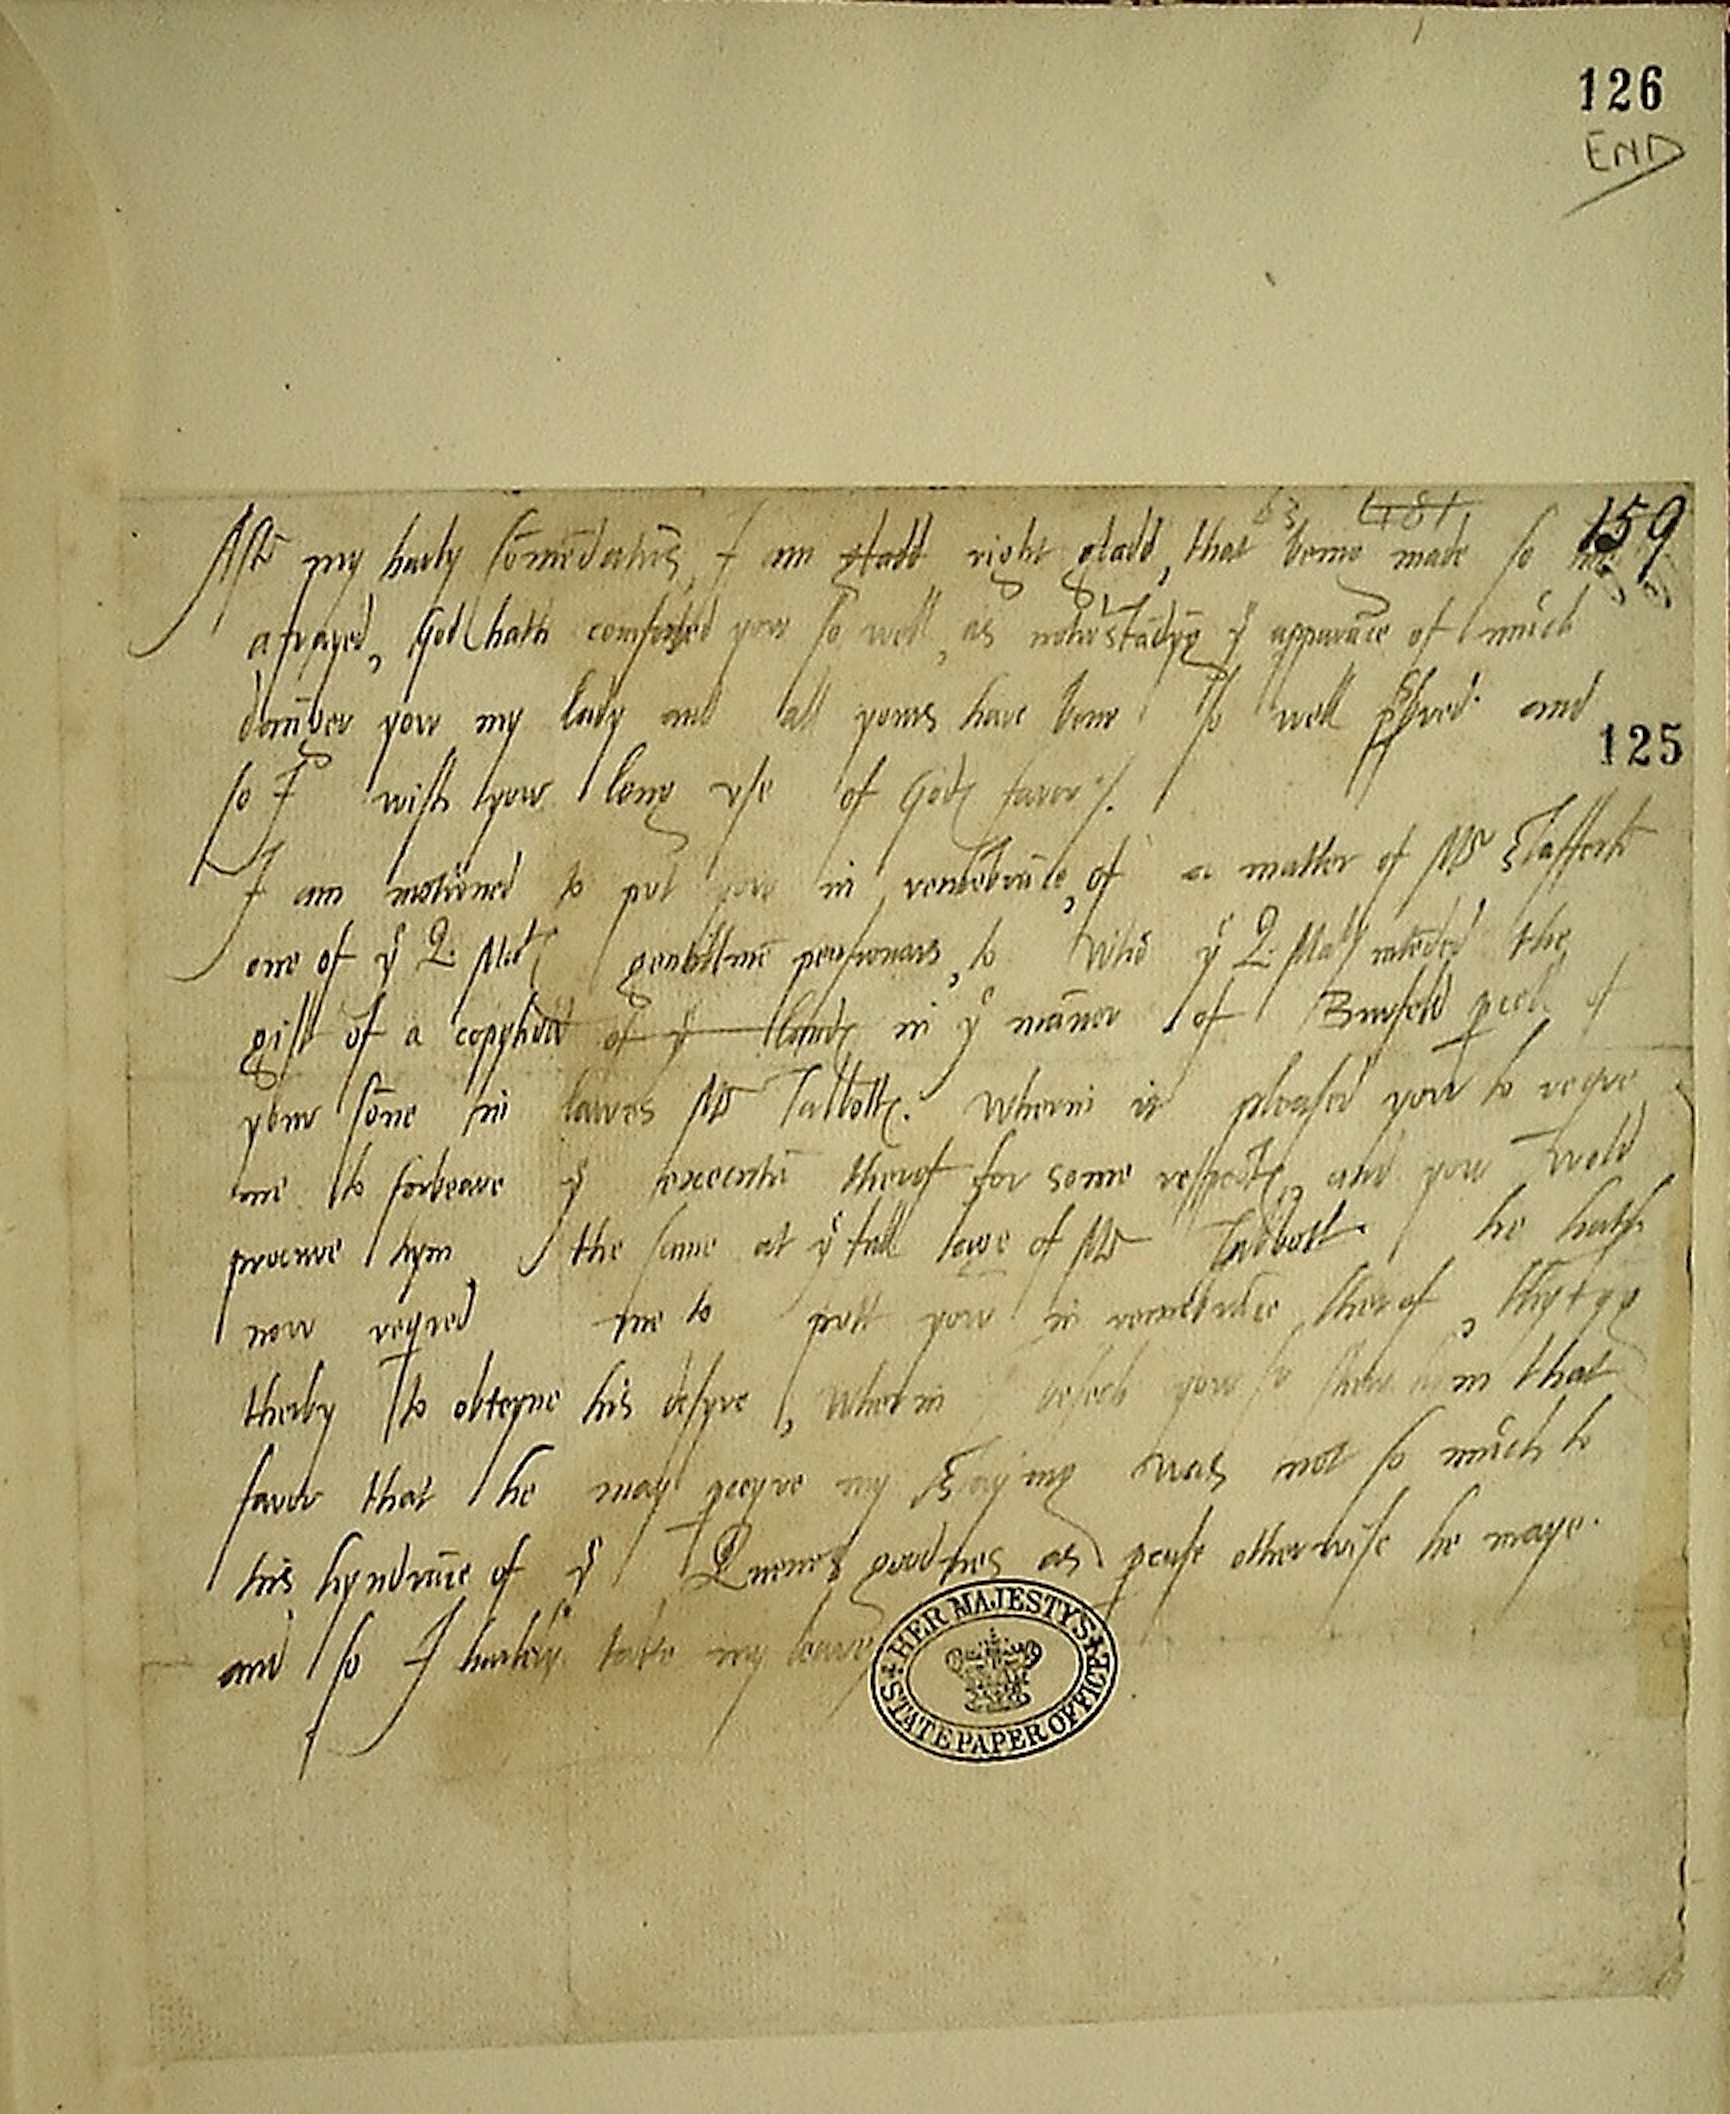 126
END
63 481 159
Aftr my harty comēdatiōs, I am gladd right gladd, that being made so
afrayed, God hath comforted yow so well, as notwtstādyg yͤ apparāce of much
daūger yow my lady and all yours have bene so well pſſved and
125
so I wish yow long vse of Godꝭ favor.
I am motioned to put yow in remēbrāce, of a matter of Mr Staffortꝭ
one of yͤ Q. Matꝭ gentillmē pensionars, to whō yͤ Q. Maty inteded the
gift of a copyhold of yͤ landꝭ in yͤ maner of pcell of
your sōne in lawes Mr Talbottꝭ. Wherin it pleased yow to reqre
me to forbeare yͤ executiō therof for some respectꝭ, and yow wold
procure hym the same at yͤ full age of Mr Talbott. he hath
now reqred me to putt yow in remēbrāce therof,
therby to obteyne his desyre, wherin I beseche yow to shew hym that
favor that he may pceyve my staying was not so much to
his hyndrāce of yͤ Quenes goodnes as pcase otherwise he maye.
and so I hartely take my leave
HER MAJESTY'S STATE PAPER OFFICE